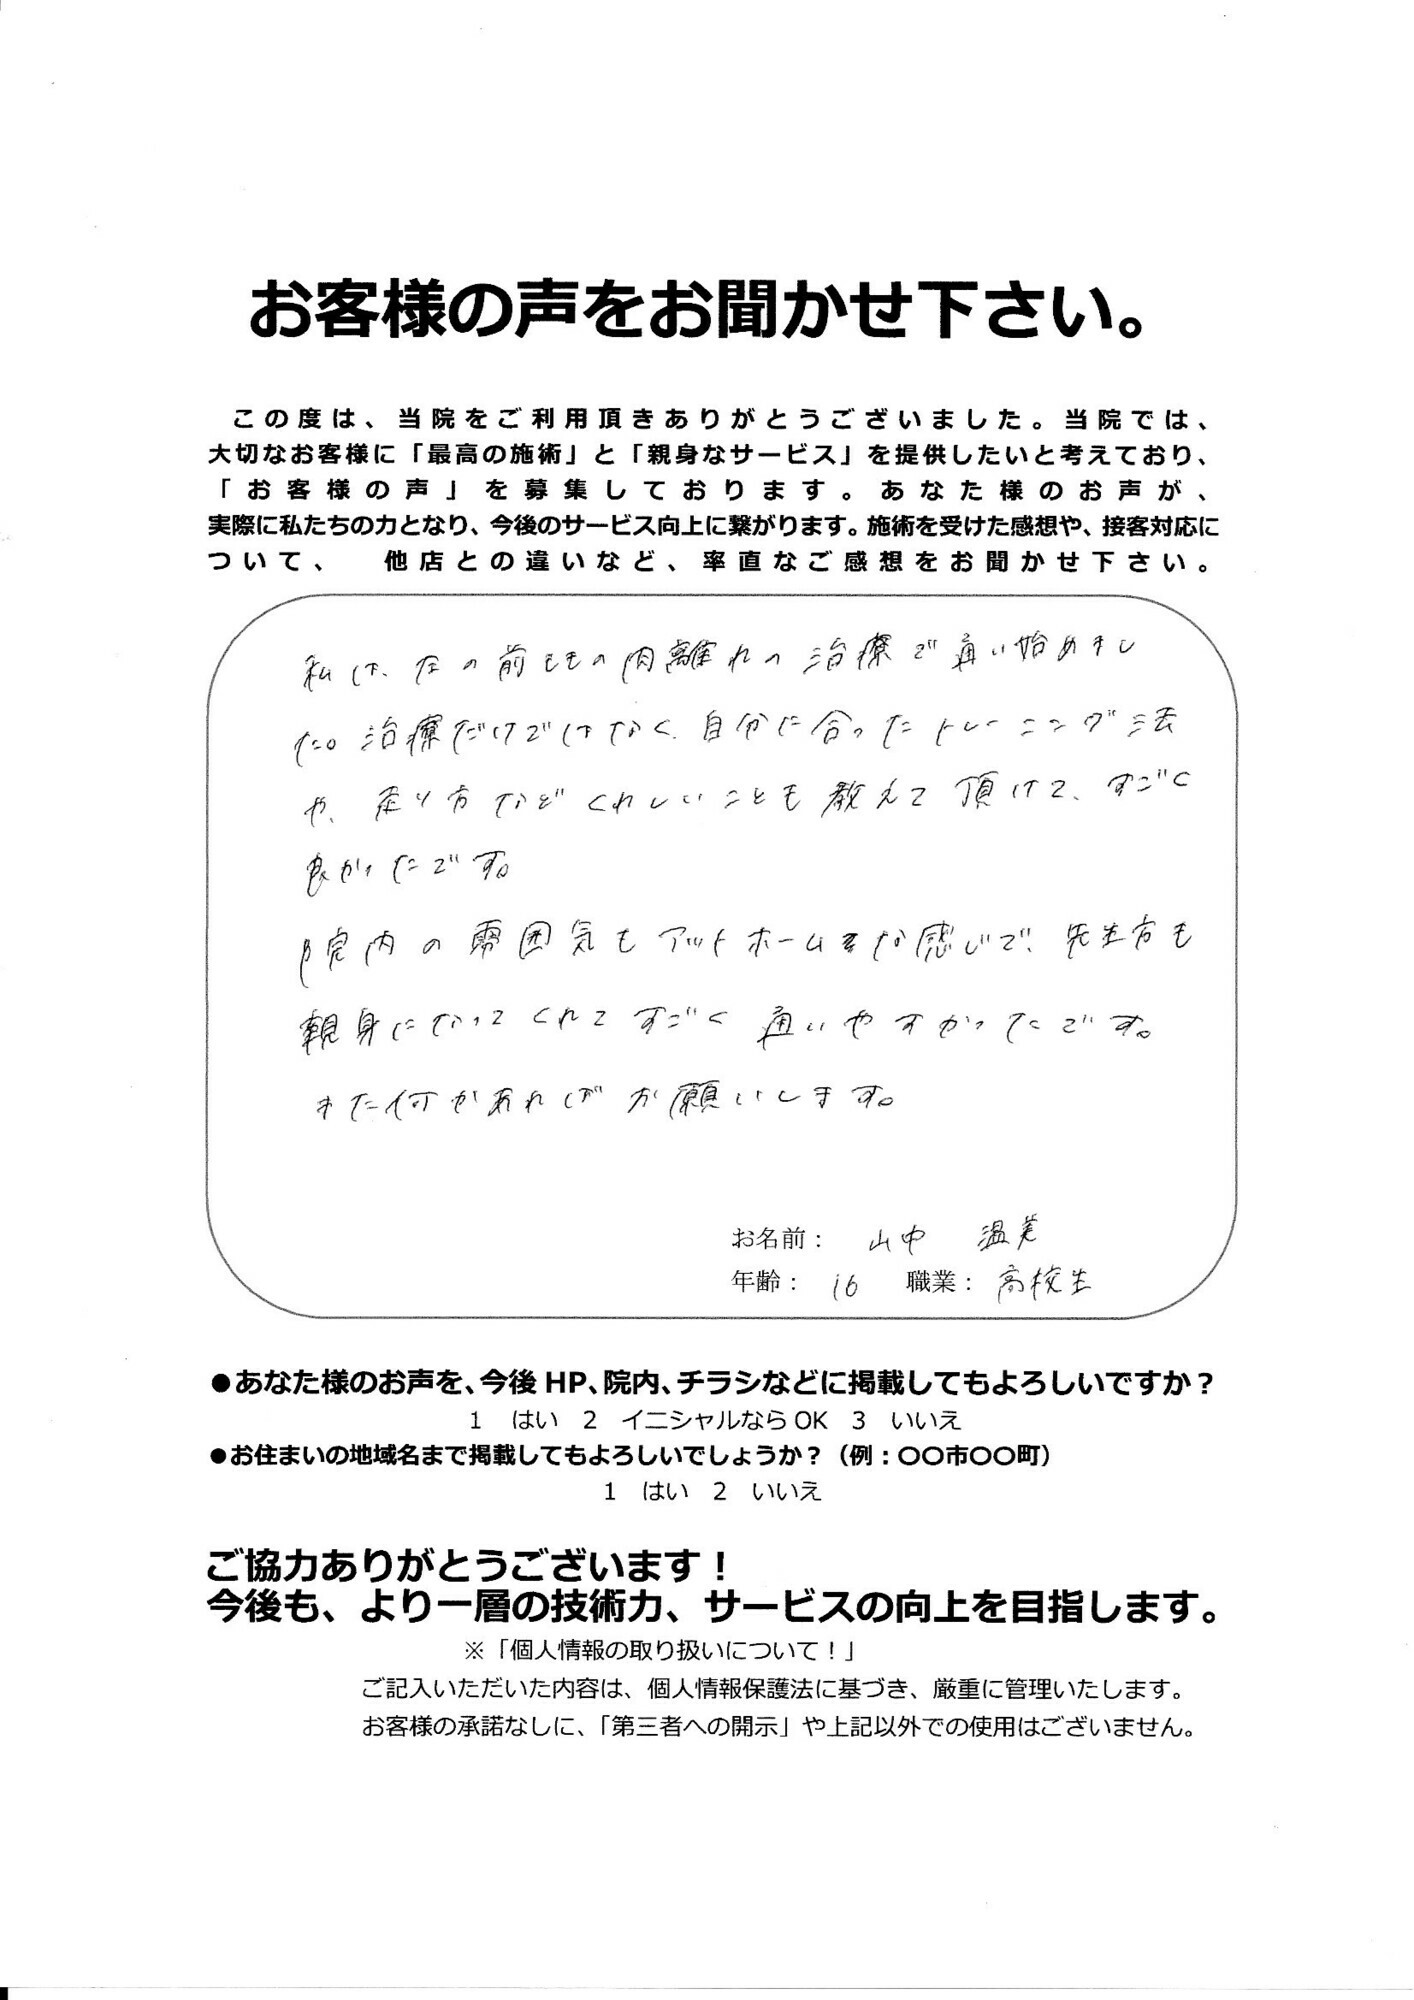 お客様の声をお聞かせ下さい。
この度は、当院をご利用頂きありがとうございました。当院では、
大切なお客様に「最高の施術」と「親身なサービス」を提供したいと考えており、
「お客様の声」を募集しております。あなた様のお声が、
実際に私たちの力となり、今後のサービス向上に繋がります。施術を受けた感想や、接客対応に
ついて、 他店との違いなど、率直なご感想をお聞かせ下さい。
私は、左の前ももの肉離れの治療で通い始めまし
た。治療だけではなく、自分に合ったトレーニング法
や、走り方などくわしいことも教えて頂けて、すごく
良かったです。
院内の雰囲気もアットホームな感じで、先生方も
親身になってくれてすごく通いやすかったです。
また何かあればお願いします。
お名前： 山中 温美
年齢： 16 職業： 高校生
●あなた様のお声を、今後 HP、院内、チラシなどに掲載してもよろしいですか？
1 はい 2 イニシャルなら OK 3 いいえ
●お住まいの地域名まで掲載してもよろしいでしょうか？（例：〇〇市〇〇町）
1 はい 2 いいえ
ご協力ありがとうございます！
今後も、より一層の技術力、サービスの向上を目指します。
※「個人情報の取り扱いについて！」
ご記入いただいた内容は、個人情報保護法に基づき、厳重に管理いたします。
お客様の承諾なしに、「第三者への開示」や上記以外での使用はございません。